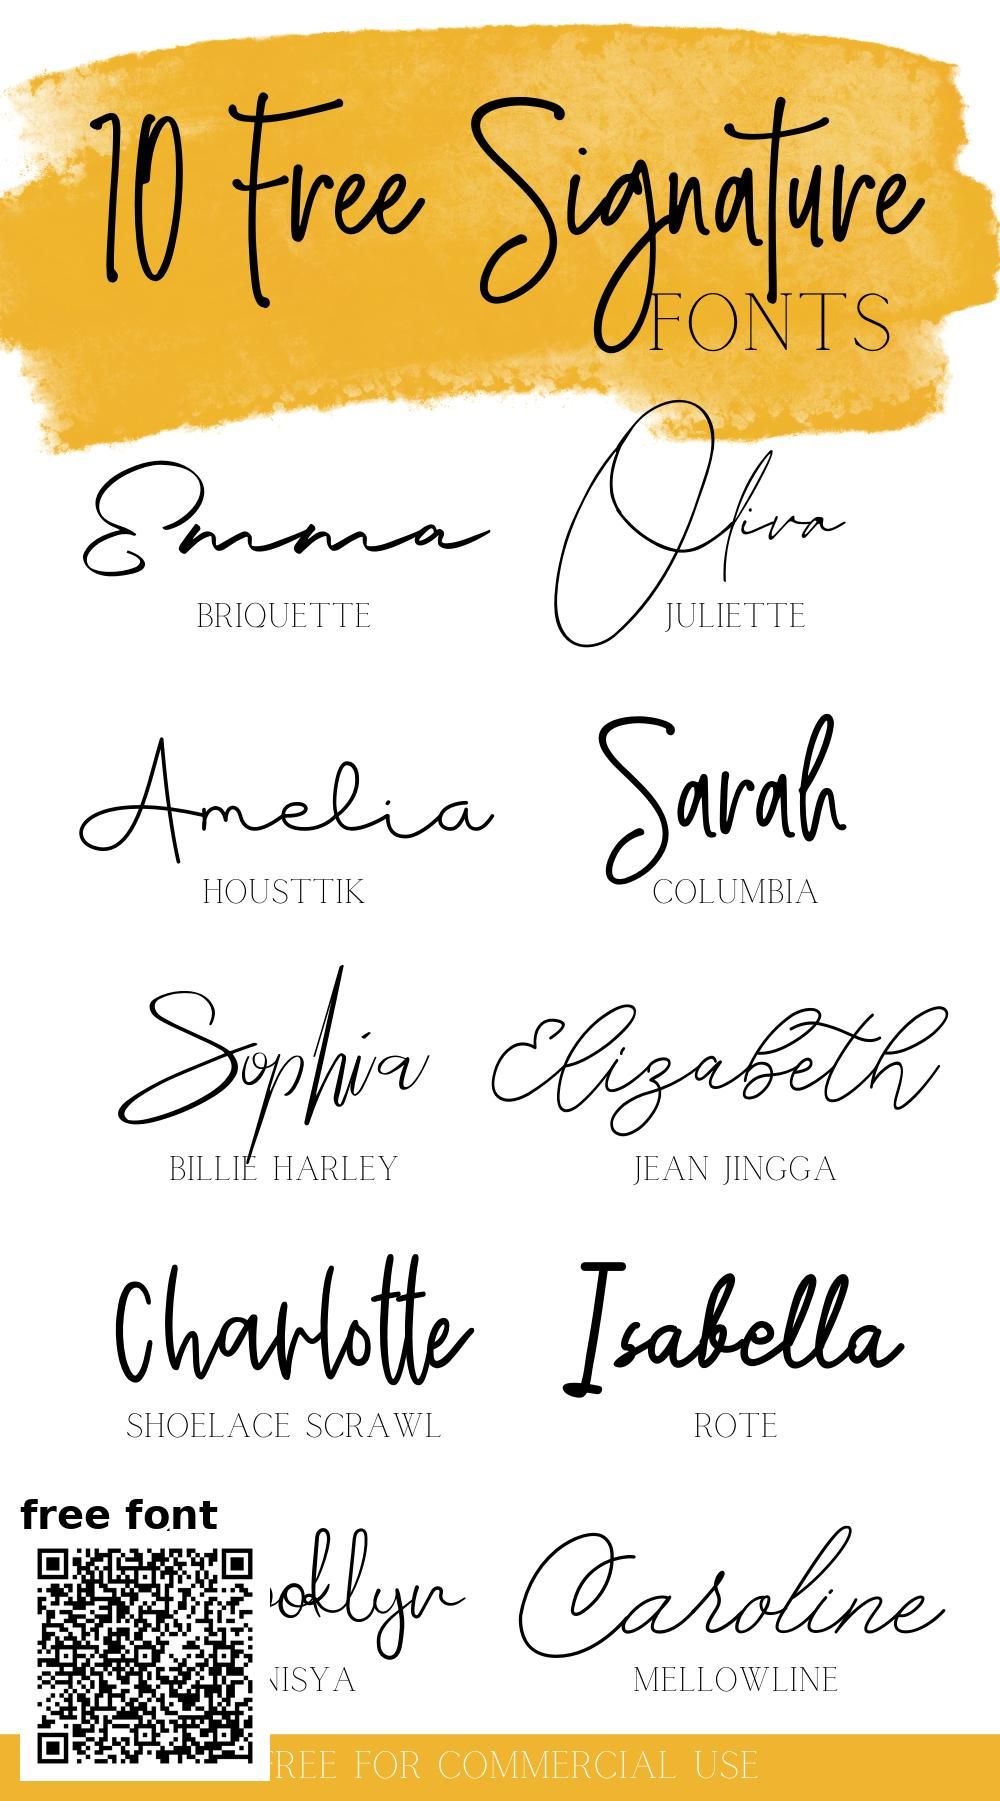 10 Free Signature
FONTS
Emma
Oliva
BRIQUETTE
JULIETTE
Amelia
Sarah
HOUSTTIK
COLUMBIA
Sophia
Elizabeth
BILLIE HARLEY
JEAN JINGGA
Charlotte
Isabella
SHOELACE SCRAWL
ROTE
free font
Caroline
MELLOWLINE
FREE FOR COMMERCIAL USE